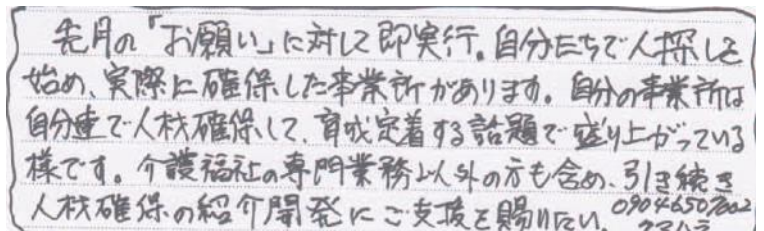 先月の「お願い」に対して即実行。自分たちで人探しを
始め、実際に確保した事業所があります。自分の事業所は
自分達で人材確保して、育成定着する話題で盛り上がっている
様です。介護福祉の専門業務以外の方も含め、引き続き
人材確保の紹介開発にご支援を賜りたい。09046507002